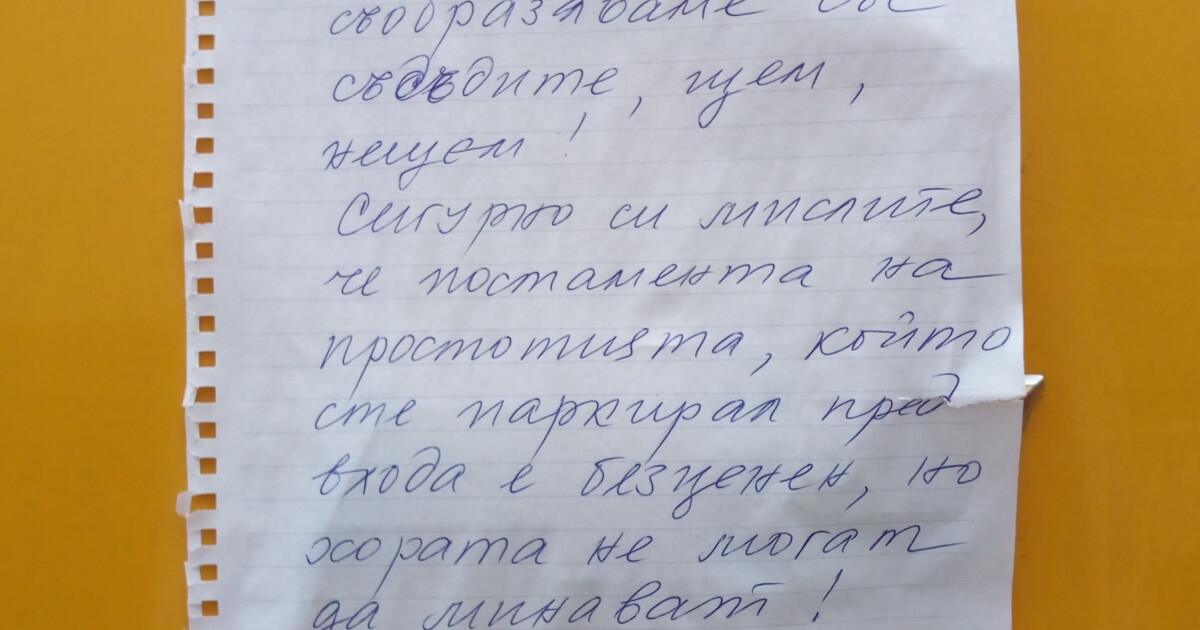 съобразяваме със
съседите, щем,
нещем!
Сигурно си мислите,
че постамента на
простотията, който
сте паркирал пред
входа е безценен, но
хората не могат
да минават!